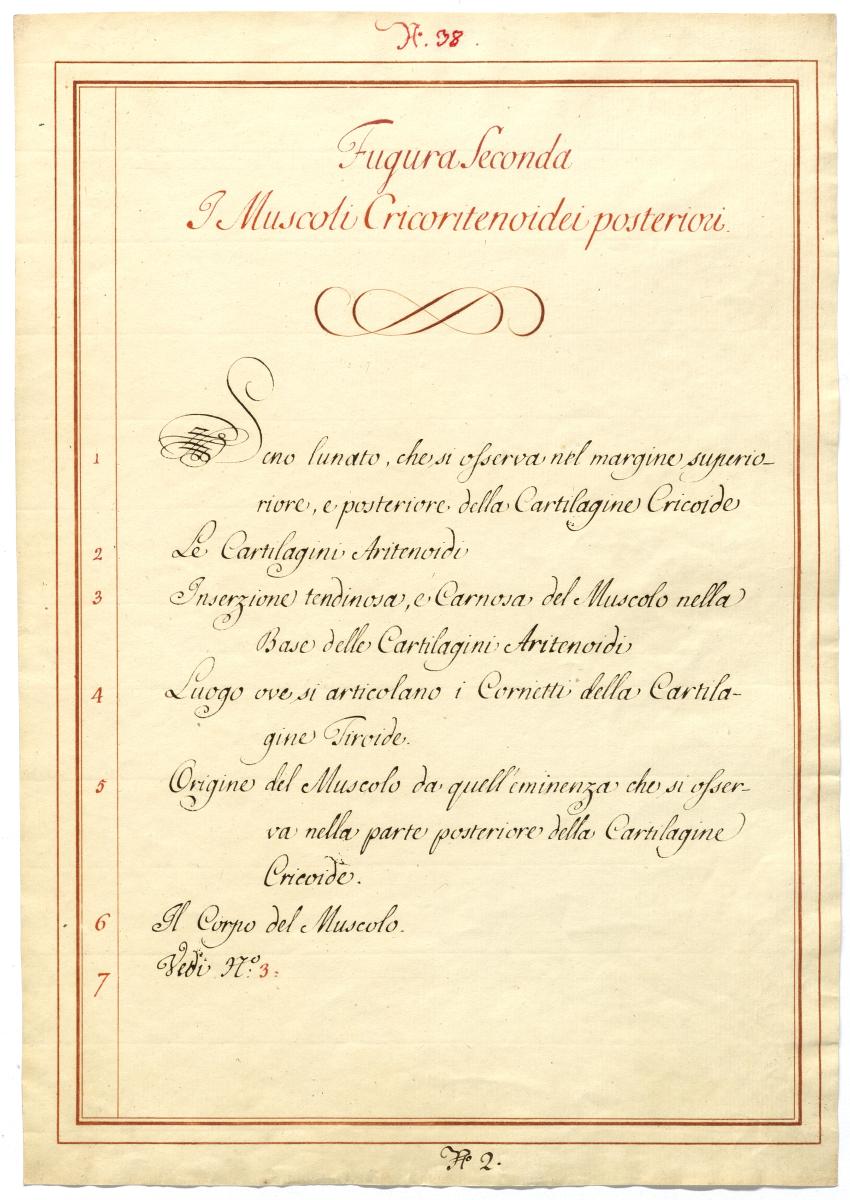 N.º 38.
Fugura Seconda
I Muscoli Cricoritenoidei posteriori.
1 Seno lunato, che si osserva nel margine superio-
riore, e posteriore della Cartilagine Cricoide
2 Le Cartilagini Aritenoidi
3 Inserzione tendinosa, e Carnosa del Muscolo nella
Base delle Cartilagini Aritenoidi
4 Luogo ove si articolano i Cornetti della Cartila-
gine Tiroide.
5 Origine del Muscolo da quell'eminenza che si osser-
va nella parte posteriore della Cartilagine
Cricoide.
6 Il Corpo del Muscolo.
7 Vedi N.º 3:
Nº 2.